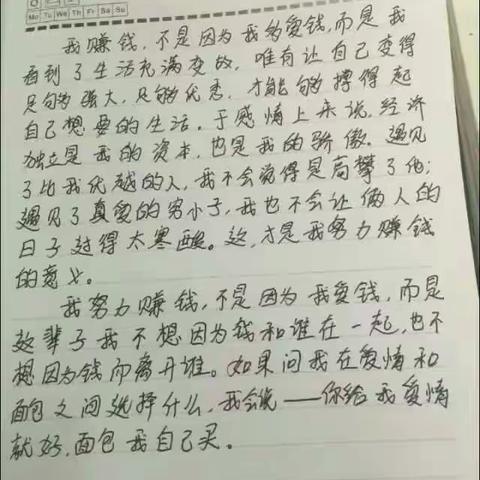 Mo Tu We Th Fr Sa Su
我赚钱,不是因为我多爱钱,而是我
看到了生活充满变故,唯有让自己变得
足够强大,足够优秀,才能够撑得起
自己想要的生活。于感情上来说,经济
独立是我的资本,也是我的骄傲。遇见
了比我优越的人,我不会觉得是高攀了他;
遇见了真爱的穷小子,我也不会让俩人的
日子过得太寒酸。这,才是我努力赚钱
的意义。
我努力赚钱,不是因为我爱钱,而是
这辈子我不想因为钱和谁在一起,也不
想因为钱而离开谁。如果问我在爱情和
面包之间选择什么,我会说——你给我爱情
就好,面包我自己买。